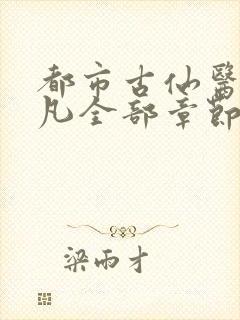 都市古仙醫
凡全部章節
梁雨才